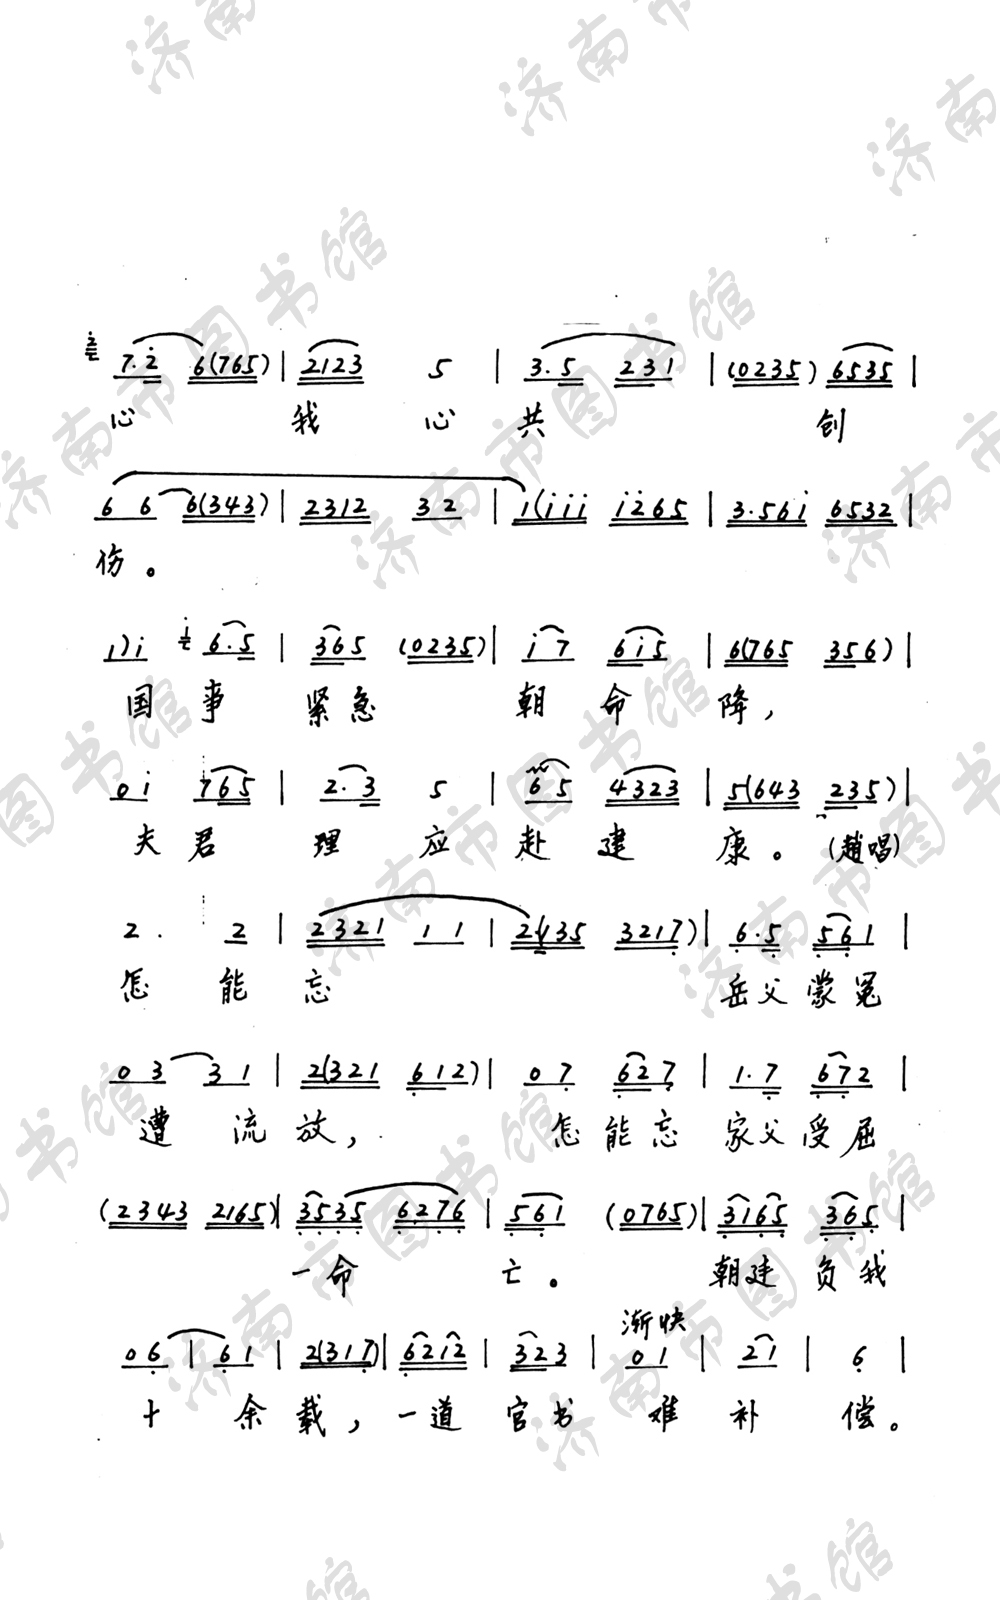 2̇ 7.2̇ 6(765) | 2123 5 | 3.5 231 | (0235) 6535 |
心 我 心 共 创
6 6 6(343) | 2312 32 | 1(i̇i̇i̇ i̇2̇65 | 3.56i̇ 6532 |
伤。
1)i̇ i̇ 6.5 | 365 (0235) | i̇7 6i̇5 | 6(765 356) |
国 事 紧 急 朝 命 降,
0i̇ 765 | 2.3 5 | 65 4323 | 5(643 235) |
夫 君 理 应 赴 建 康。 (趙唱)
2. 2 | 2321 11 | 2(435 3217̣) | 6̣.5̣ 5̣6̣1 |
怎 能 忘 岳 父 蒙 冤
03 31 | 2(321 6̣12) | 07̣ 6̣27̣ | 1.7̣ 6̣7̣2 |
遭 流 放, 怎 能 忘 家 父 受 屈
(2343 2165) | 3̣5̣3̣5̣ 6̣2̣7̣6̣ | 5̣6̣1 (0765) | 3̣1̣6̣5̣ 3̣6̣5̣ |
一 命 亡。 朝 廷 负 我
渐快
06̣ | 6̣1 | 2(317̣) | 6̣212 | 323 | 01 | 21 | 6̣ |
十 余 载, 一 道 官 书 难 补 偿。
济南市图书馆